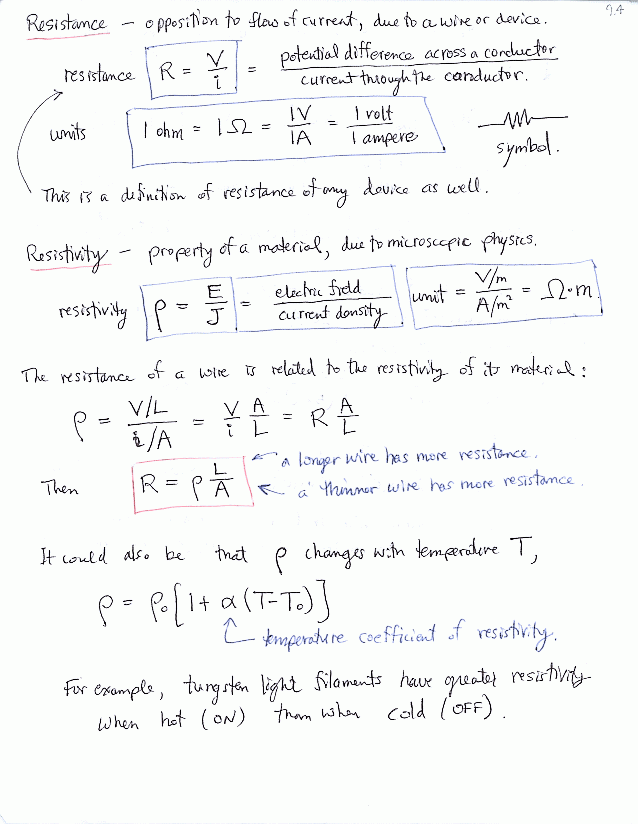 7.4
Resistance – opposition to flow of current, due to a wire or device.
resistance R = V/i = potential difference across a conductor / current through the conductor.
units 1 ohm = 1 Ω = 1V/1A = 1 volt/1 ampere
symbol.
This is a definition of resistance of any device as well.
Resistivity – property of a material, due to microscopic physics.
resistivity ρ = E/J = electric field/current density unit = V/m / A/m² = Ω·m
The resistance of a wire is related to the resistivity of its material:
ρ = V/L / i/A = V/i A/L = R A/L
a longer wire has more resistance.
Then R = ρ L/A
a thinner wire has more resistance.
It could also be that ρ changes with temperature T,
ρ = ρ₀[1 + α(T-T₀)]
temperature coefficient of resistivity.
For example, tungsten light filaments have greater resistivity
when hot (ON) than when cold (OFF).